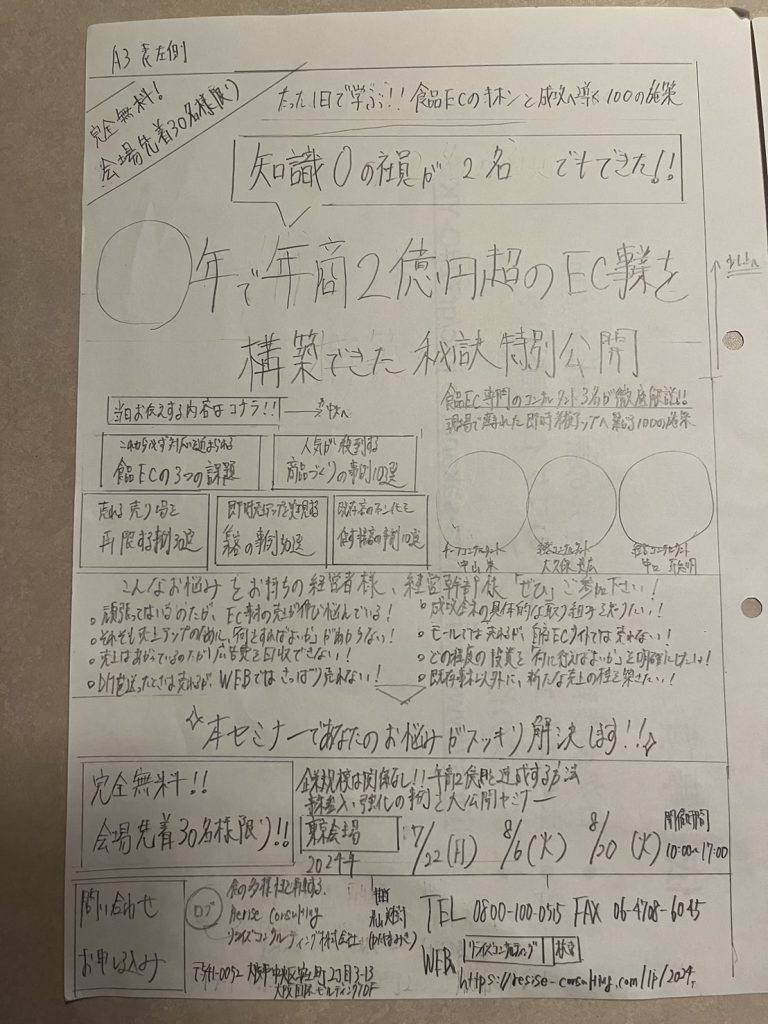 A3 表左側
完全無料!
会場先着30名様限り
たった1日で学ぶ!!食品ECのキホンと成功へ導く100の施策
知識0の社員が2名 でもできた!!
年で年商2億円超のEC事業を
構築できた秘訣特別公開
当日お伝えする内容はコチラ!!
食品EC専門のコンサルタント3名が徹底解説!!
食品ECの3つの課題
人気が殺到する
商品づくりの事例10選
売れる売り場を
再現する事例30選
即時売上アップを実現する
集客の事例30選
こんなお悩みをお持ちの経営者様、経営幹部様「ぜひ」ご参加下さい!
○頑張ってはいるのだが、EC事業の売上が伸び悩んでいる!
○成功企業の具体的な取り組みを知りたい!
○そもそも売上アップの為に、「何をすればよいか」がわからない!
○モールでは売れるが、自社ECサイトでは売れない!
○売上はあがっているのだが広告費を回収できない!
○どの程度の投資を「何に行えばよいか」を明確にしたい!
○DMを送ったときは売れるが、WEBではさっぱり売れない!
○既存事業以外に、新たな売上の柱を築きたい!
本セミナーであなたのお悩みがスッキリ解決します!!
完全無料!!
会場先着30名様限り!!
企業規模は関係なし!!年商2億円を達成する方法
強化の事例を大公開セミナー
東京会場
2024年
7/22(月) 8/6(火) 8/20(火)
開催時間
10:00~17:00
問い合わせ
お申し込み
ロゴ
Resise Consulting
リソイズコンサルティング株式会社
〒541-0052 大阪市中央区安土町2丁目3-13
大阪国際ビルディング10F
TEL 0800-100-0515 FAX 06-4708-6045
WEB リソイズコンサルティング 検索
https://resise-consulting.com/lp/2024